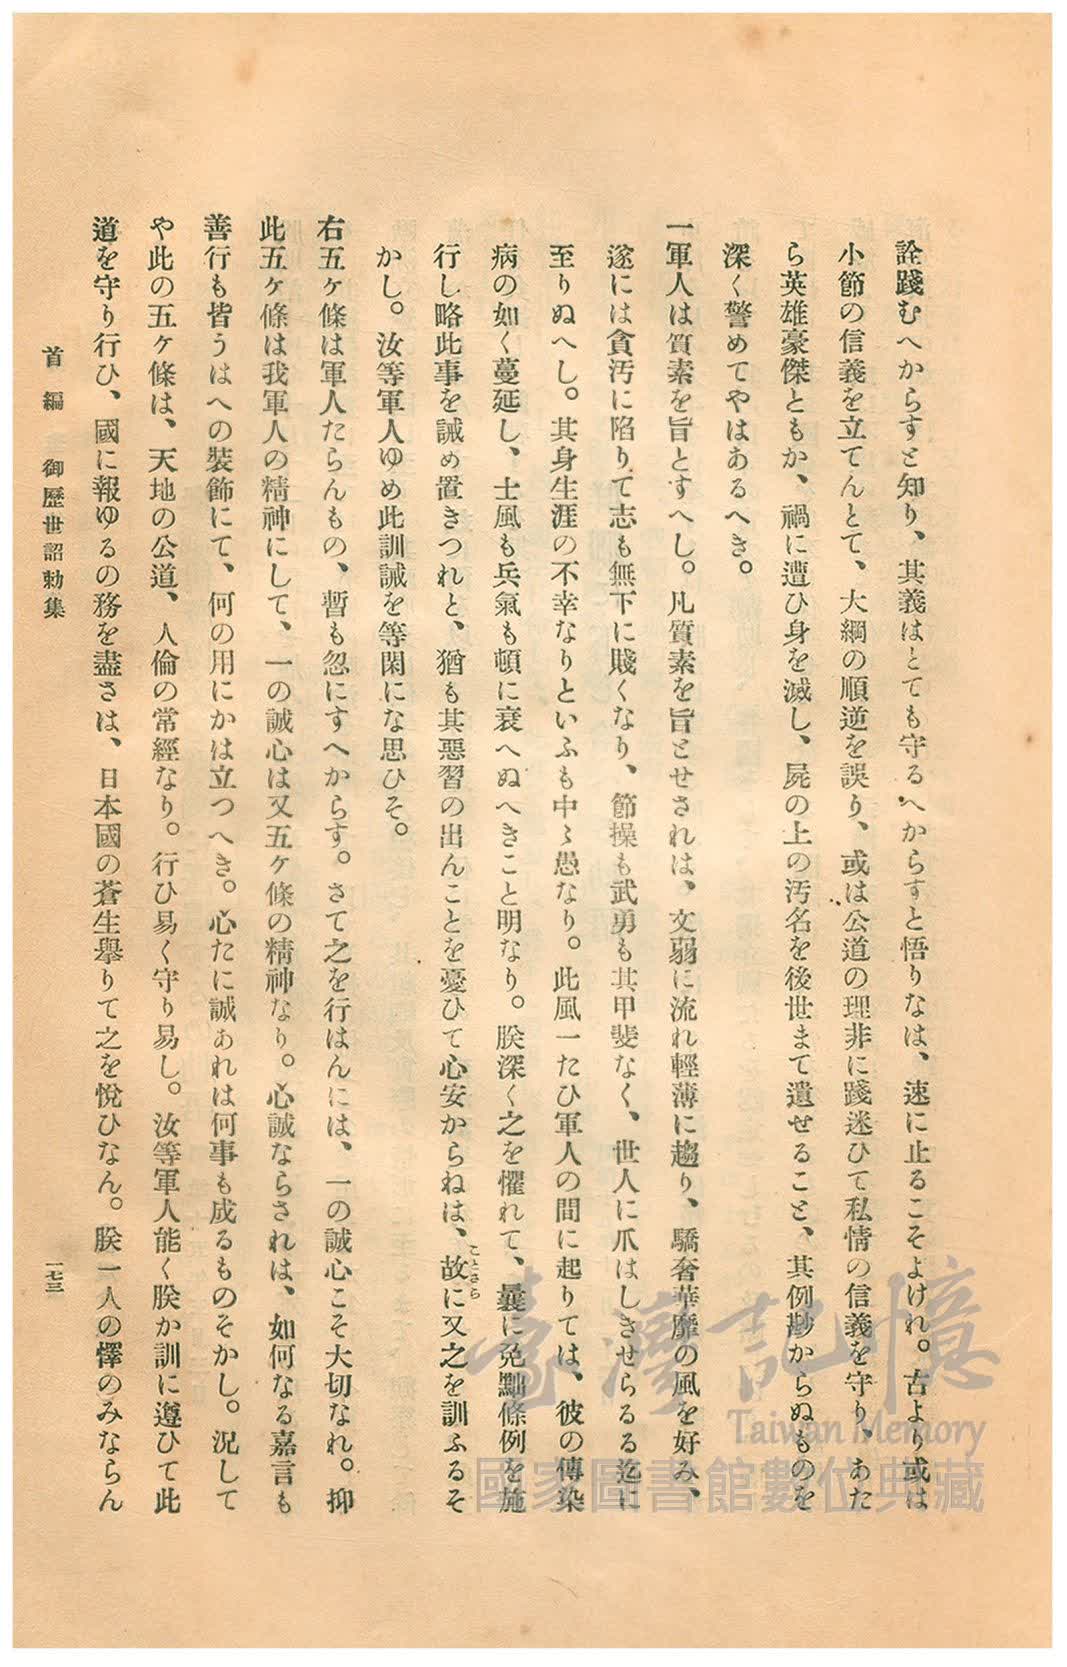 詮踐むへからすと知り、其義はとても守るへからすと悟りなは、速に止るこそよけれ。古より或は
小節の信義を立てんとて、大綱の順逆を誤り、或は公道の理非に踐迷ひて私情の信義を守り、あた
ら英雄豪傑ともか、禍に遭ひ身を滅し、屍の上の汚名を後世まて遺せること、其例尠からぬものを
深く警めてやはあるへき。
一軍人は質素を旨とすへし。凡質素を旨とせされは、文弱に流れ輕薄に趨り、驕奢華靡の風を好み、
遂には貪汚に陷りて志も無下に賤くなり、節操も武勇も其甲斐なく、世人に爪はしきせらるる迄に
至りぬへし。其身生涯の不幸なりといふも中々愚なり。此風一たひ軍人の間に起りては、彼の傳染
病の如く蔓延し、士風も兵氣も頓に衰へぬへきこと明なり。朕深く之を懼れて、曩に免黜條例を施
行し略此事を誡め置きつれと、猶も其惡習の出んことを憂ひて心安からねは、故に又之を訓ふるそ
ことさら
かし。汝等軍人ゆめ此訓誡を等閑にな思ひそ。
右五ヶ條は軍人たらんもの、暫も忽にすへからす。さて之を行はんには、一の誠心こそ大切なれ。抑
此五ヶ條は我軍人の精神にして、一の誠心は又五ヶ條の精神なり。心誠ならされは、如何なる嘉言も
善行も皆うはへの裝飾にて、何の用にかは立つへき。心たに誠あれは何事も成るものそかし。況して
や此の五ヶ條は、天地の公道、人倫の常經なり。行ひ易く守り易し。汝等軍人能く朕か訓に遵ひて此
道を守り行ひ、國に報ゆるの務を盡さは、日本國の蒼生擧りて之を悅ひなん。朕一人の懌のみならん
首編 御歷世詔勅集
一七三
臺灣記憶
Taiwan Memory
國家圖書館數位典藏